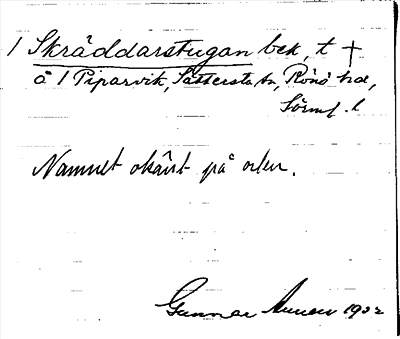 1 Skräddarstugan bek, t †
å 1 Piparvik, Sättersta sn, Rönö hd,
Sörml. l
Namnet okänt på orten.
Gunnar 1932